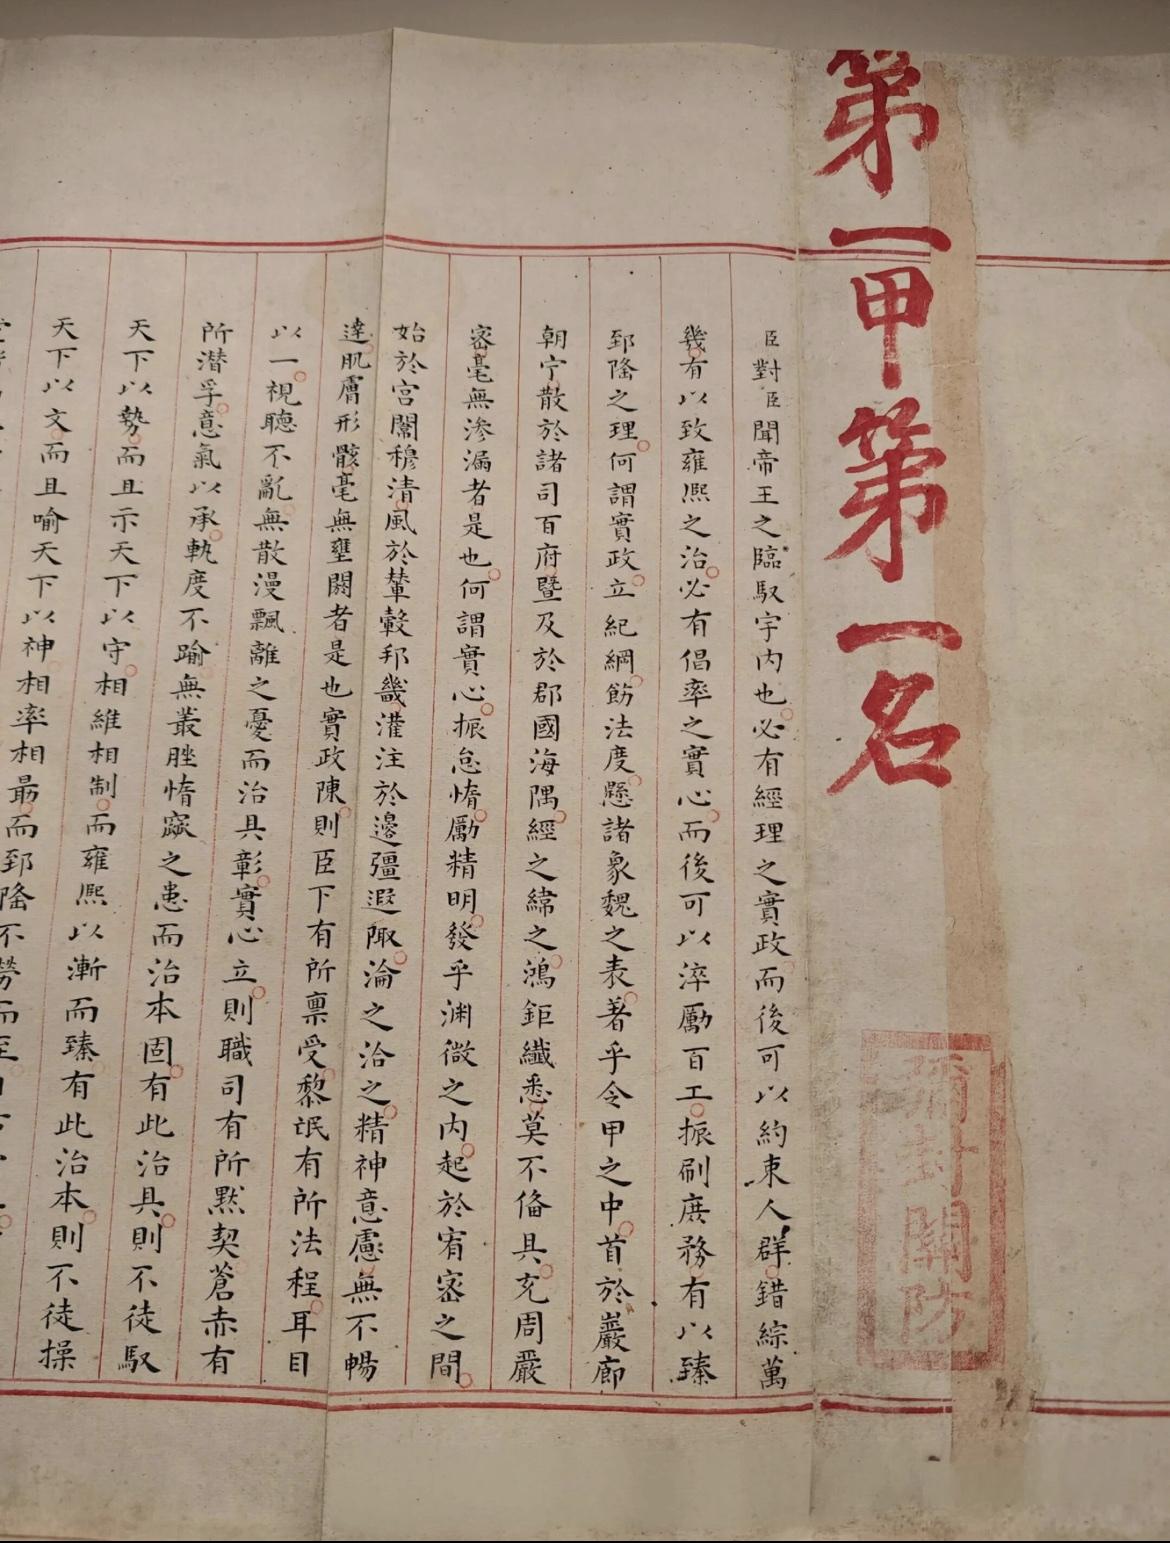 第一甲第一名
彌封關防
臣對臣聞帝王之臨馭宇內也必有經理之實政而後可以約束人群錯綜萬
幾有以致雍熙之治必有倡率之實心而後可以淬勵百工振刷庶務有以臻
郅隆之理何謂實政立紀綱飭法度懸諸象魏之表著乎令甲之中首於巖廊
朝宁散於諸司百府暨及於郡國海隅經之緯之鴻鉅纖悉莫不備具充周嚴
密毫無滲漏者是也何謂實心振怠惰勵精明發乎淵微之內起於宥密之間
始於宮闈穆清風於輦轂邦畿灌注於邊疆遐陬淪之洽之精神意慮無不暢
達肌膚形骸毫無壅閼者是也實政陳則臣下有所稟受黎氓有所法程耳目
以一視聽不亂無散漫飄離之憂而治具彰實心立則職司有所默契蒼赤有
所潛孚意氣以承軌度不踰無叢脞惰窳之患而治本固有此治具則不徒馭
天下以勢而且示天下以守相維相制而雍熙以漸而臻有此治本則不徒操
天下以文而且喻天下以神相率相最而郅隆不勞而至